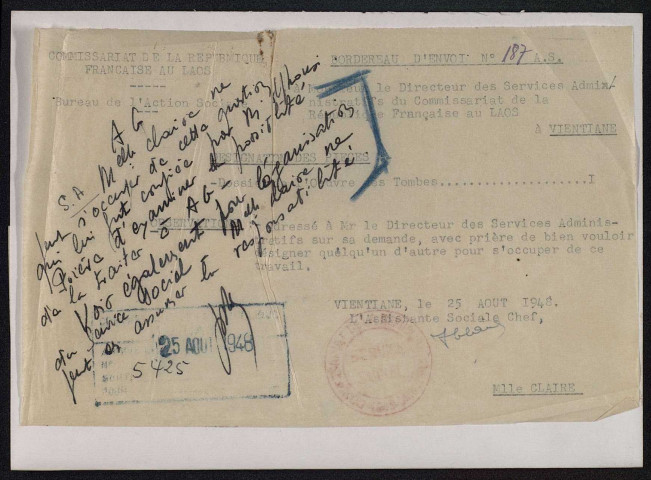 COMMISSARIAT DE LA REPUBLIQUE
FRANCAISE AU LAOS
Bureau de l'Action Soc
BORDEREAU D'ENVOI N° 187 A.S.
le Directeur des Services Admi-
nistratifs du Commissariat de la
République Française au LAOS
A VIENTIANE
DESIGNATION DES PIECES
-Dossier Oeuvre des Tombes..................I
OBSERVATION Adressé à Mr le Directeur des Services Adminis-
tratifs sur sa demande, avec prière de bien vouloir
désigner quelqu'un d'autre pour s'occuper de ce
travail.
VIENTIANE, le 25 AOUT 1948.
L'Assistante Sociale Chef,
Mlle CLAIRE
A G
S.A Melle Claire ne
peut s'occuper de cette question
qui lui fut confiée par M.
Prière d'examiner possibilité
de la traiter à AG
Voir également pour l'organisation
du Service Social Melle Claire ne
peut en assurer la responsabilité
25 AOUT 1948
5425